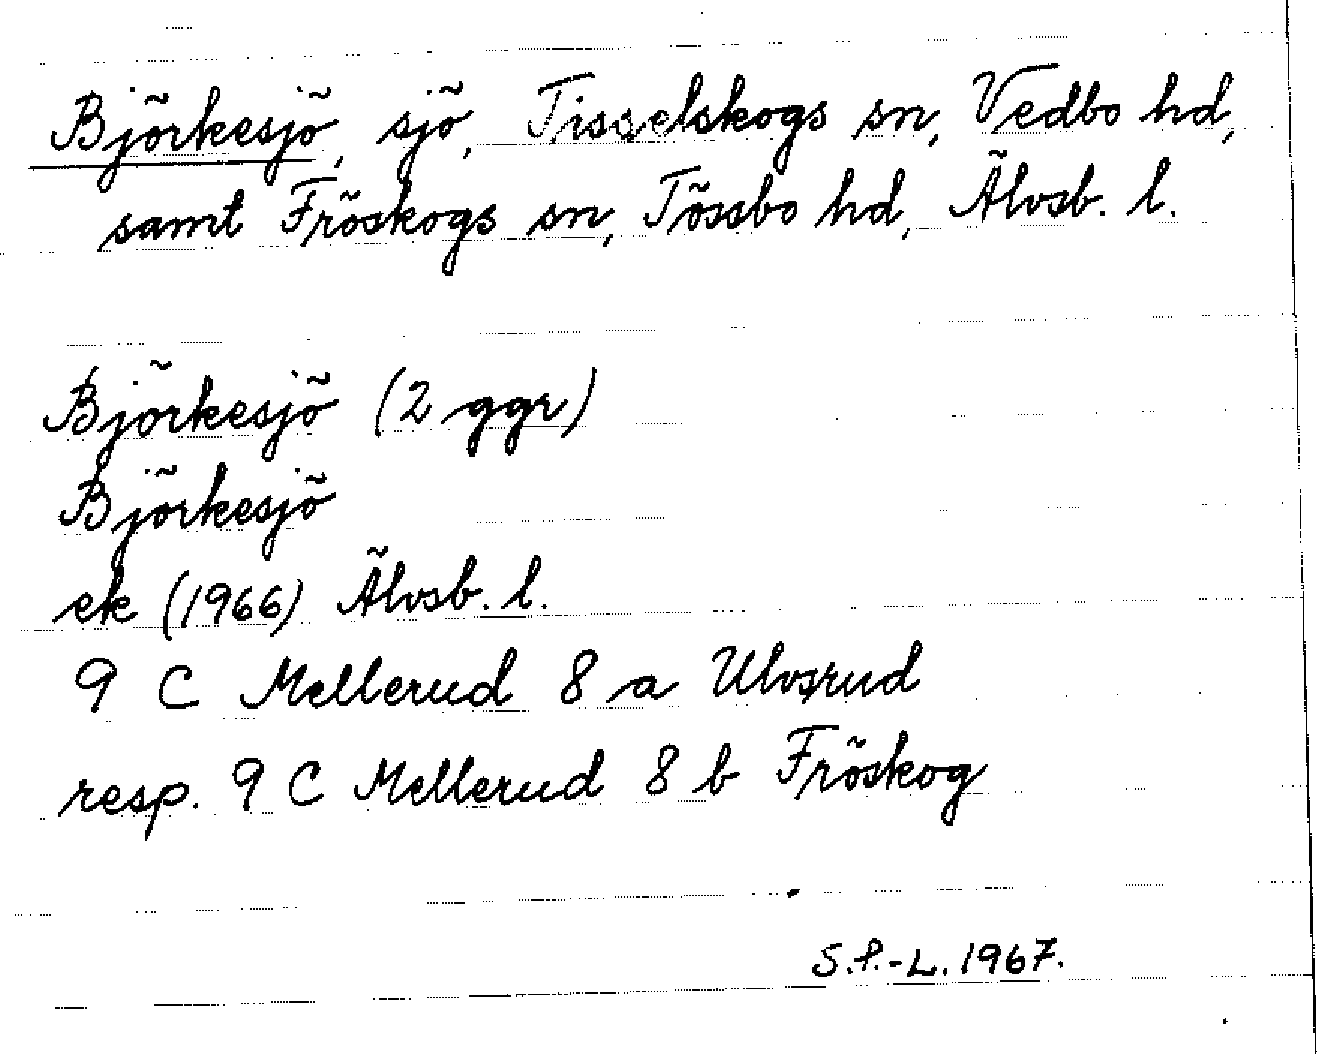 Björkesjö, sjö, Tisselskogs sn, Vedbo hd,
samt Fröskogs sn, Tössbo hd, Älvsb. l.
Björkesjö (2 ggr)
Björkesjö
ek (1966) Älvsb. l.
9 C Mellerud 8 a Ulvsrud
resp. 9 C Mellerud 8 b Fröskog
S.P.-L. 1967.